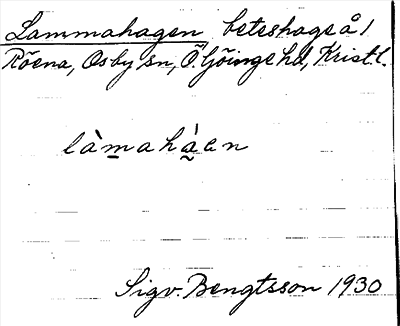 Lammahagen beteshage å 1
Röena, Osby sn, Ö. Göinge hd, Krist l.
làmahàen
Sigv. Bengtsson 1930